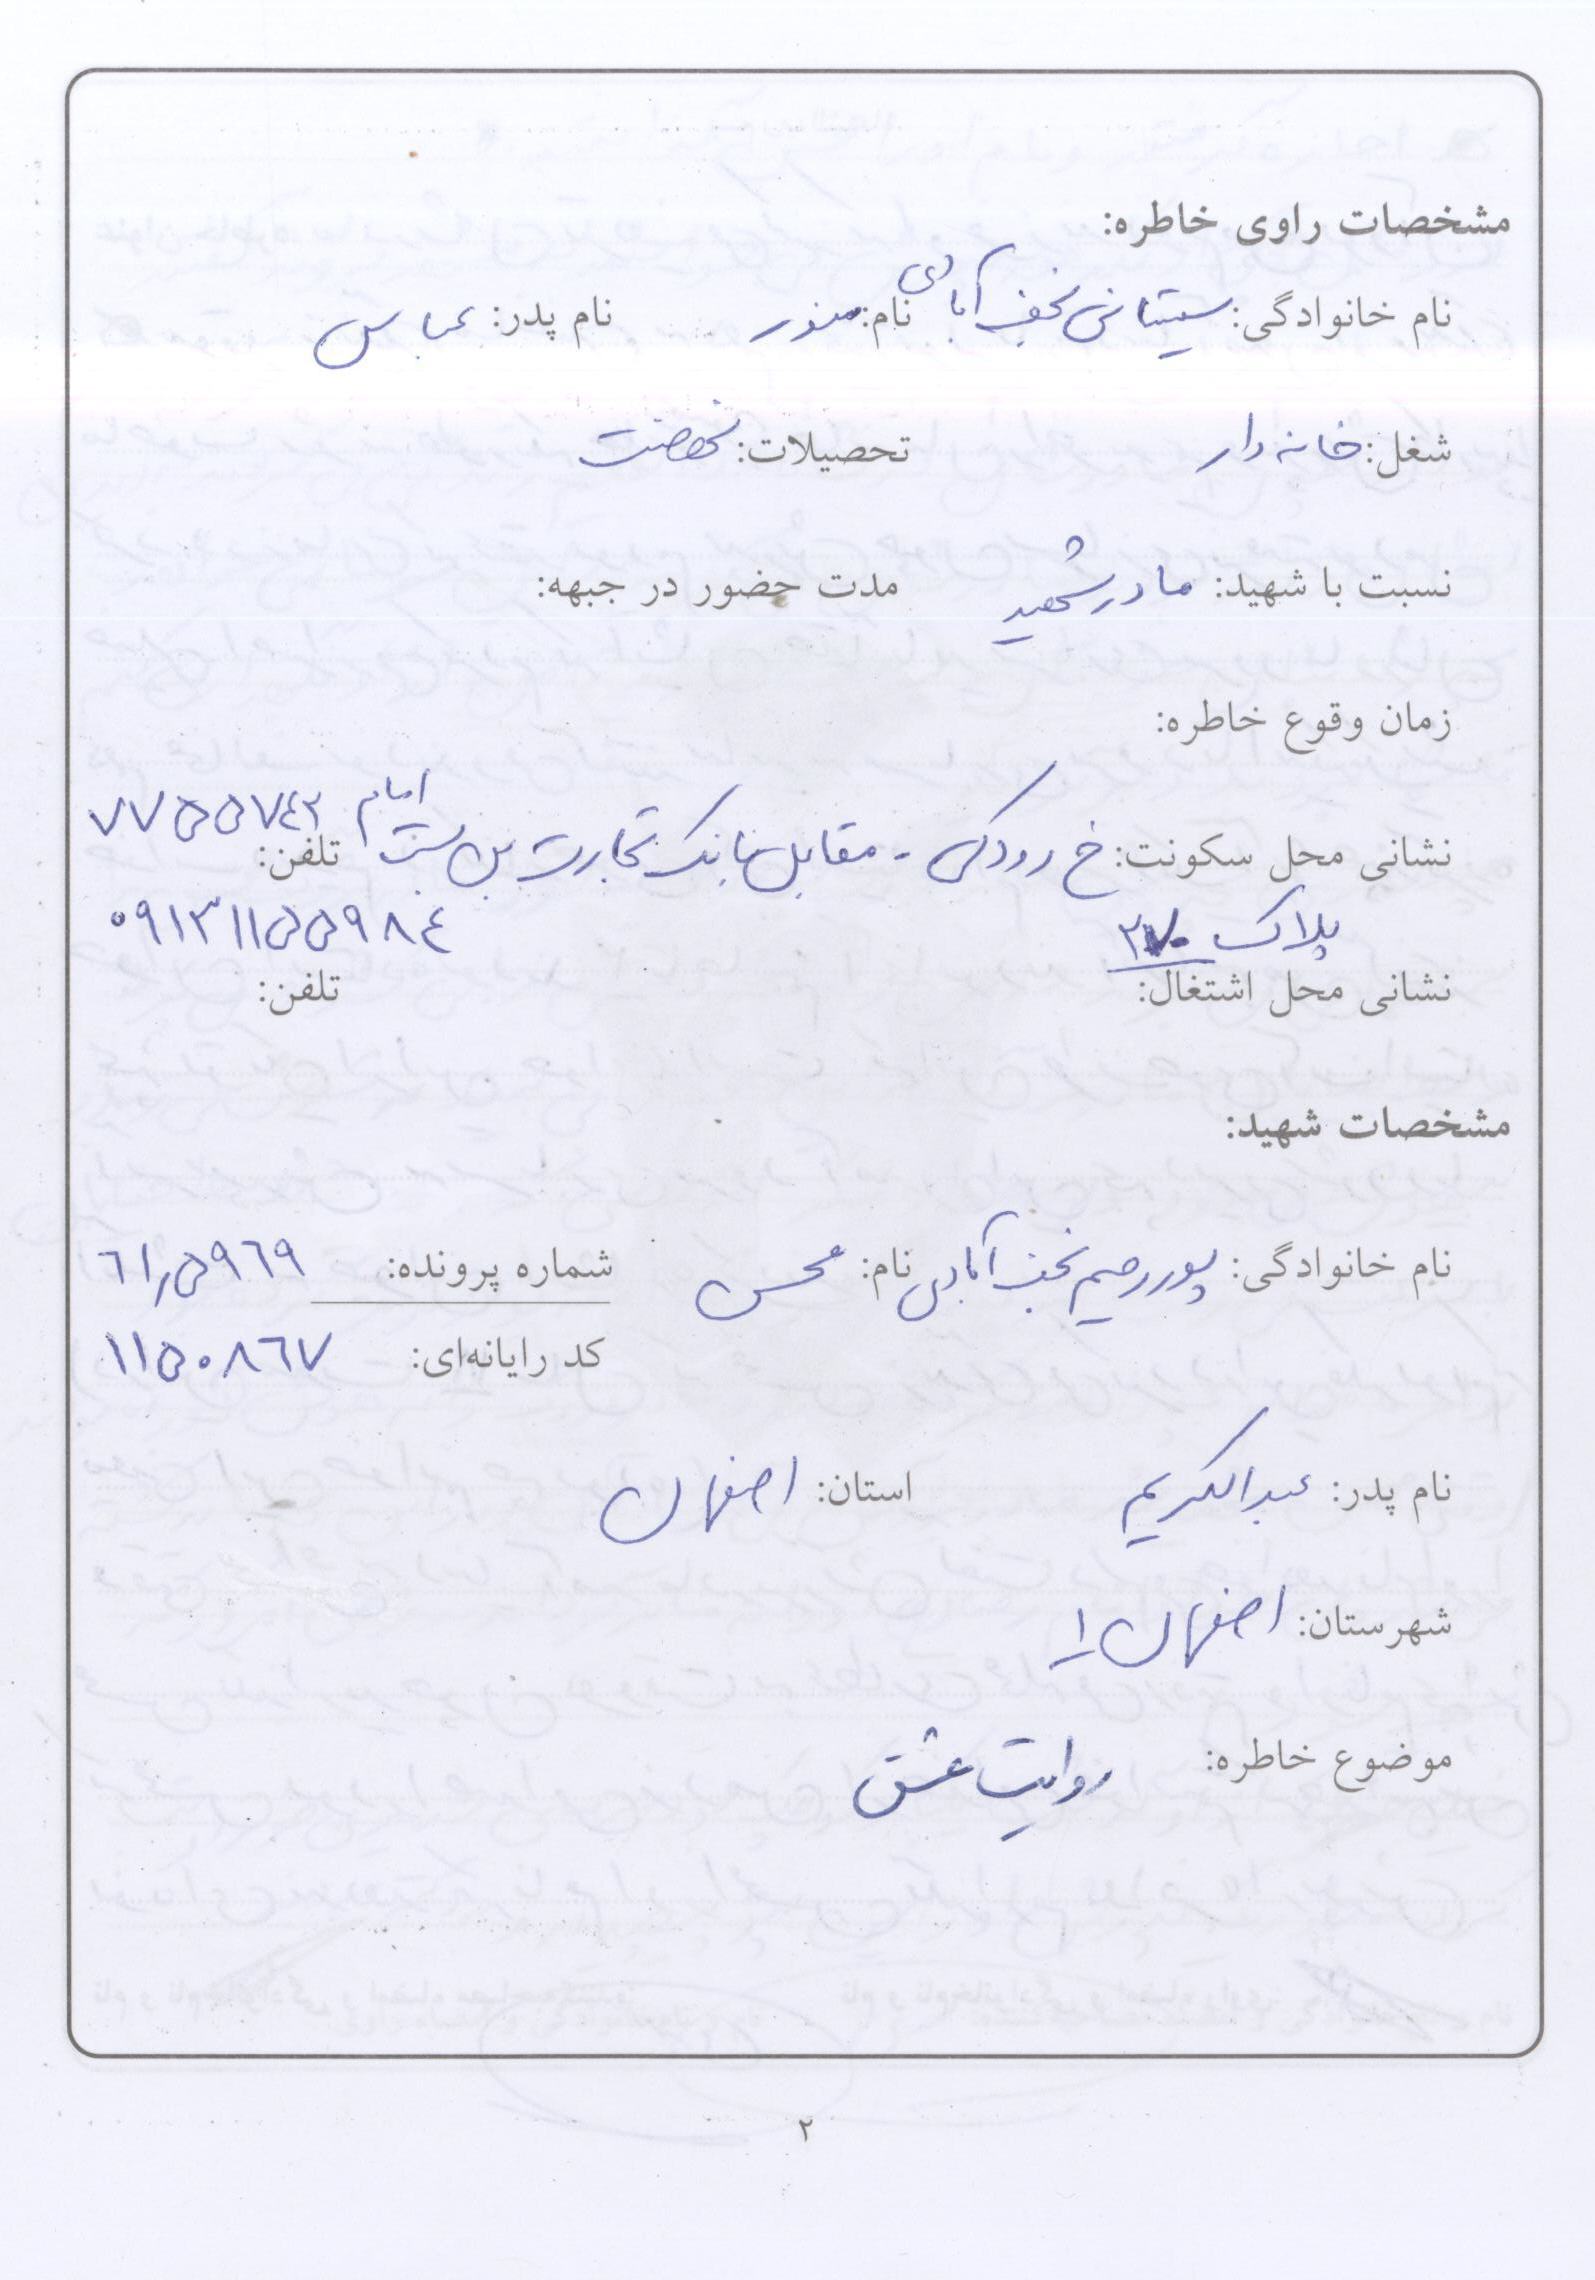 مشخصات راوی خاطره:
نام خانوادگی: سیستانی نجف آبادی نام: منور نام پدر: عباس
شغل: خانه دار تحصیلات: نهضت
نسبت با شهید: مادر شهید مدت حضور در جبهه:
زمان وقوع خاطره:
نشانی محل سکونت: خ رودکی - مقابل بانک تجارت بن بست امام تلفن: ۷۷۵۵۷۴۲
پلاک ۰۹۱۳۱۱۵۵۹۸۴
نشانی محل اشتغال: تلفن:
مشخصات شهید:
نام خانوادگی: پور رحیم نجف آبادی نام: محسن شماره پرونده: ۶۱٫۵۹۶۹
کد رایانه‌ای: ۱۱۵۰۸۶۷
نام پدر: عبدالکریم استان: اصفهان
شهرستان: اصفهان ۱
موضوع خاطره: روایت عشق
۲